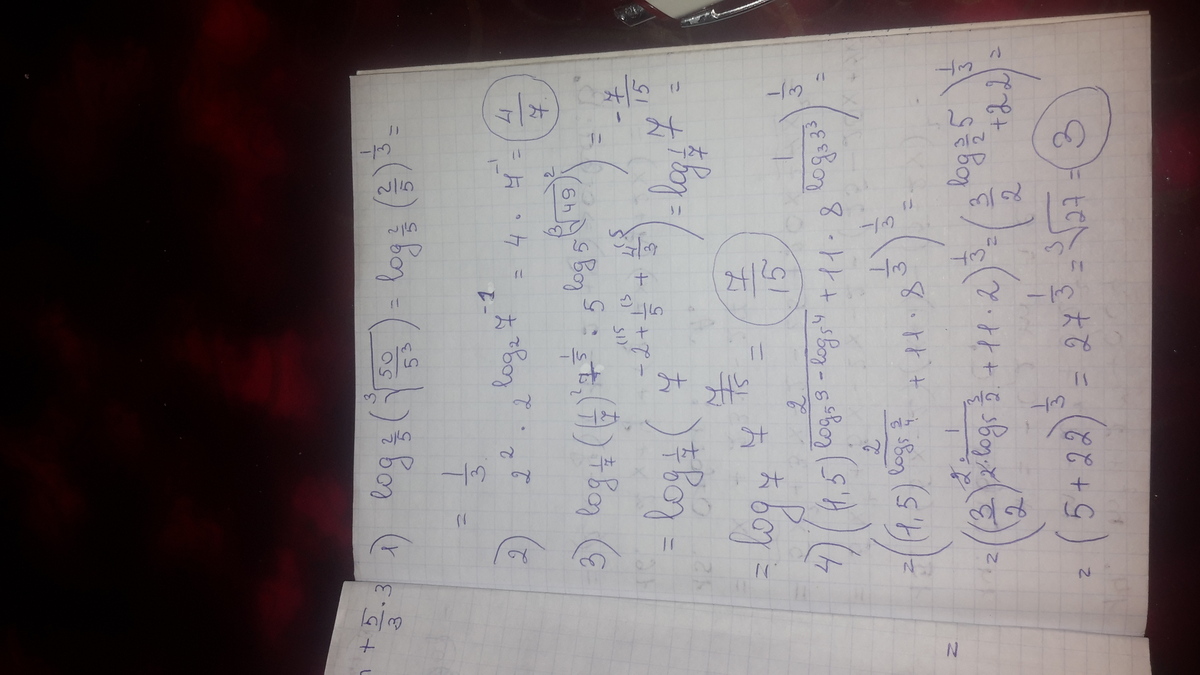 1) log_{2/5} (∛(50/5³)) = log_{2/5} (2/5)^{1/3} =
= 1/3
2) 2² · 2^{log₂ 7⁻¹} = 4 · 7⁻¹ = 4/7
3) log_{1/7} ((1/7)² · 7^{1/5} · 5^{log₅ (∛49)²}) =
= log_{1/7} (7^{-2 + 1/5 + 4/3}) = log_{1/7} 7^{-7/15} =
= log₇ 7^{7/15} = 7/15
4) ((1,5)^{2/(log₅ 9 - log₅ 4)} + 11 · 8^{1/(log₃ 3³)})^{1/3} =
= ((1,5)^{2/(log₅ 9/4)} + 11 · 8^{1/3})^{1/3} =
= ((3/2)^{2 · 1/(2 · log₅ 3/2)} + 11 · 2)^{1/3} = (3/2^{log_{3/2} 5} + 22)^{1/3} =
= (5 + 22)^{1/3} = 27^{1/3} = ∛27 = 3
+ 5/3 · 3
=